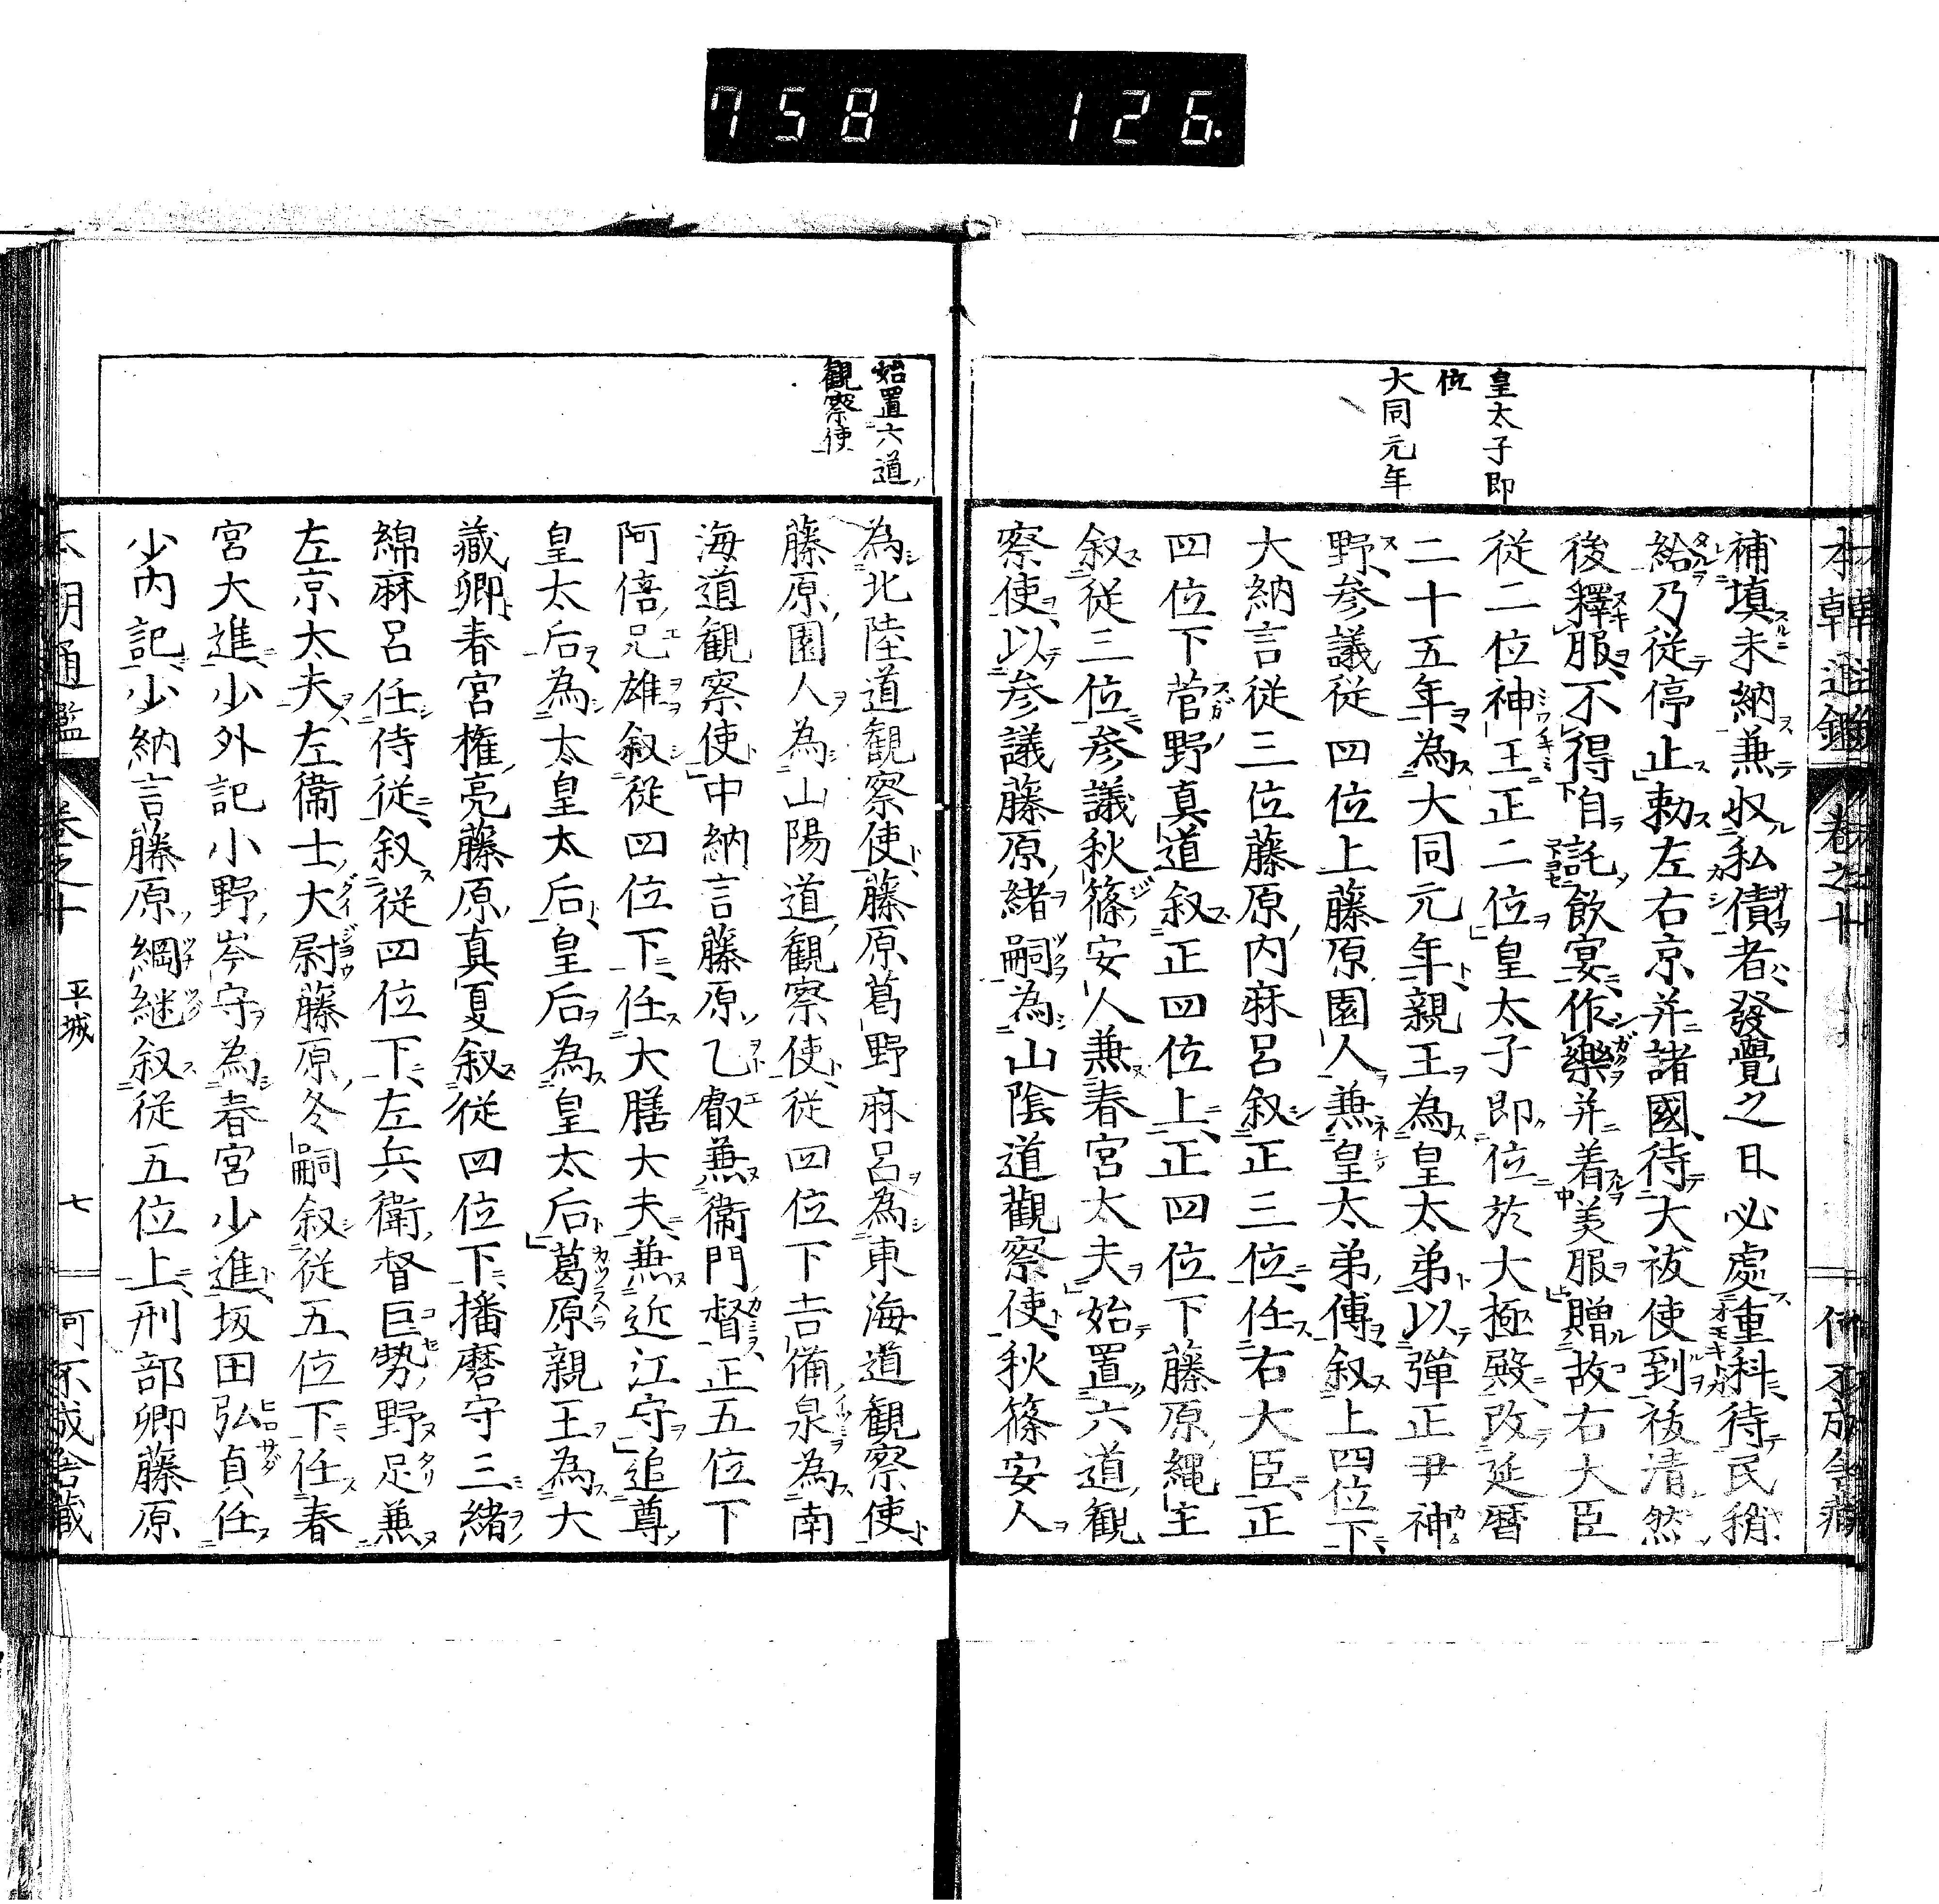 758 126
皇太子即
位
大同元年
補填未納兼収私債者發覺之日必處重科待民稍
給乃從停止勅左右京并諸國待大祓使到祓清然
後釋服不得自託飲宴作樂并着美服贈故右大臣
從二位神王正二位皇太子即位於大極殿改延暦
二十五年為大同元年親王為皇太弟以彈正尹神
野参議從四位上藤原園人兼皇太弟傅叙上四位下
大納言從三位藤原内麻呂叙正三位任右大臣正
四位下菅野真道叙正四位上正四位下藤原縄主
叙從三位参議秋篠安人兼春宮太夫始置六道觀
察使以参議藤原緒嗣為山陰道觀察使秋篠安人
始置六道
觀察使
為北陸道觀察使藤原葛野麻呂為東海道觀察使
藤原園人為山陽道觀察使從四位下吉備泉為南
海道觀察使中納言藤原乙叡兼衞門督正五位下
阿倍兄雄叙從四位下任大膳大夫兼近江守追尊
皇太后為太皇太后皇后為皇太后葛原親王為大
藏卿春宮権亮藤原真夏叙從四位下播磨守三緒
綿麻呂任侍從叙從四位下左兵衛督巨勢野足兼
左京太夫左衞士大尉藤原冬嗣叙從五位下任春
宮大進少外記小野岑守為春宮少進坂田弘貞任
少内記少納言藤原綱継叙從五位上刑部卿藤原
本朝通鑑 卷之十 平城 七